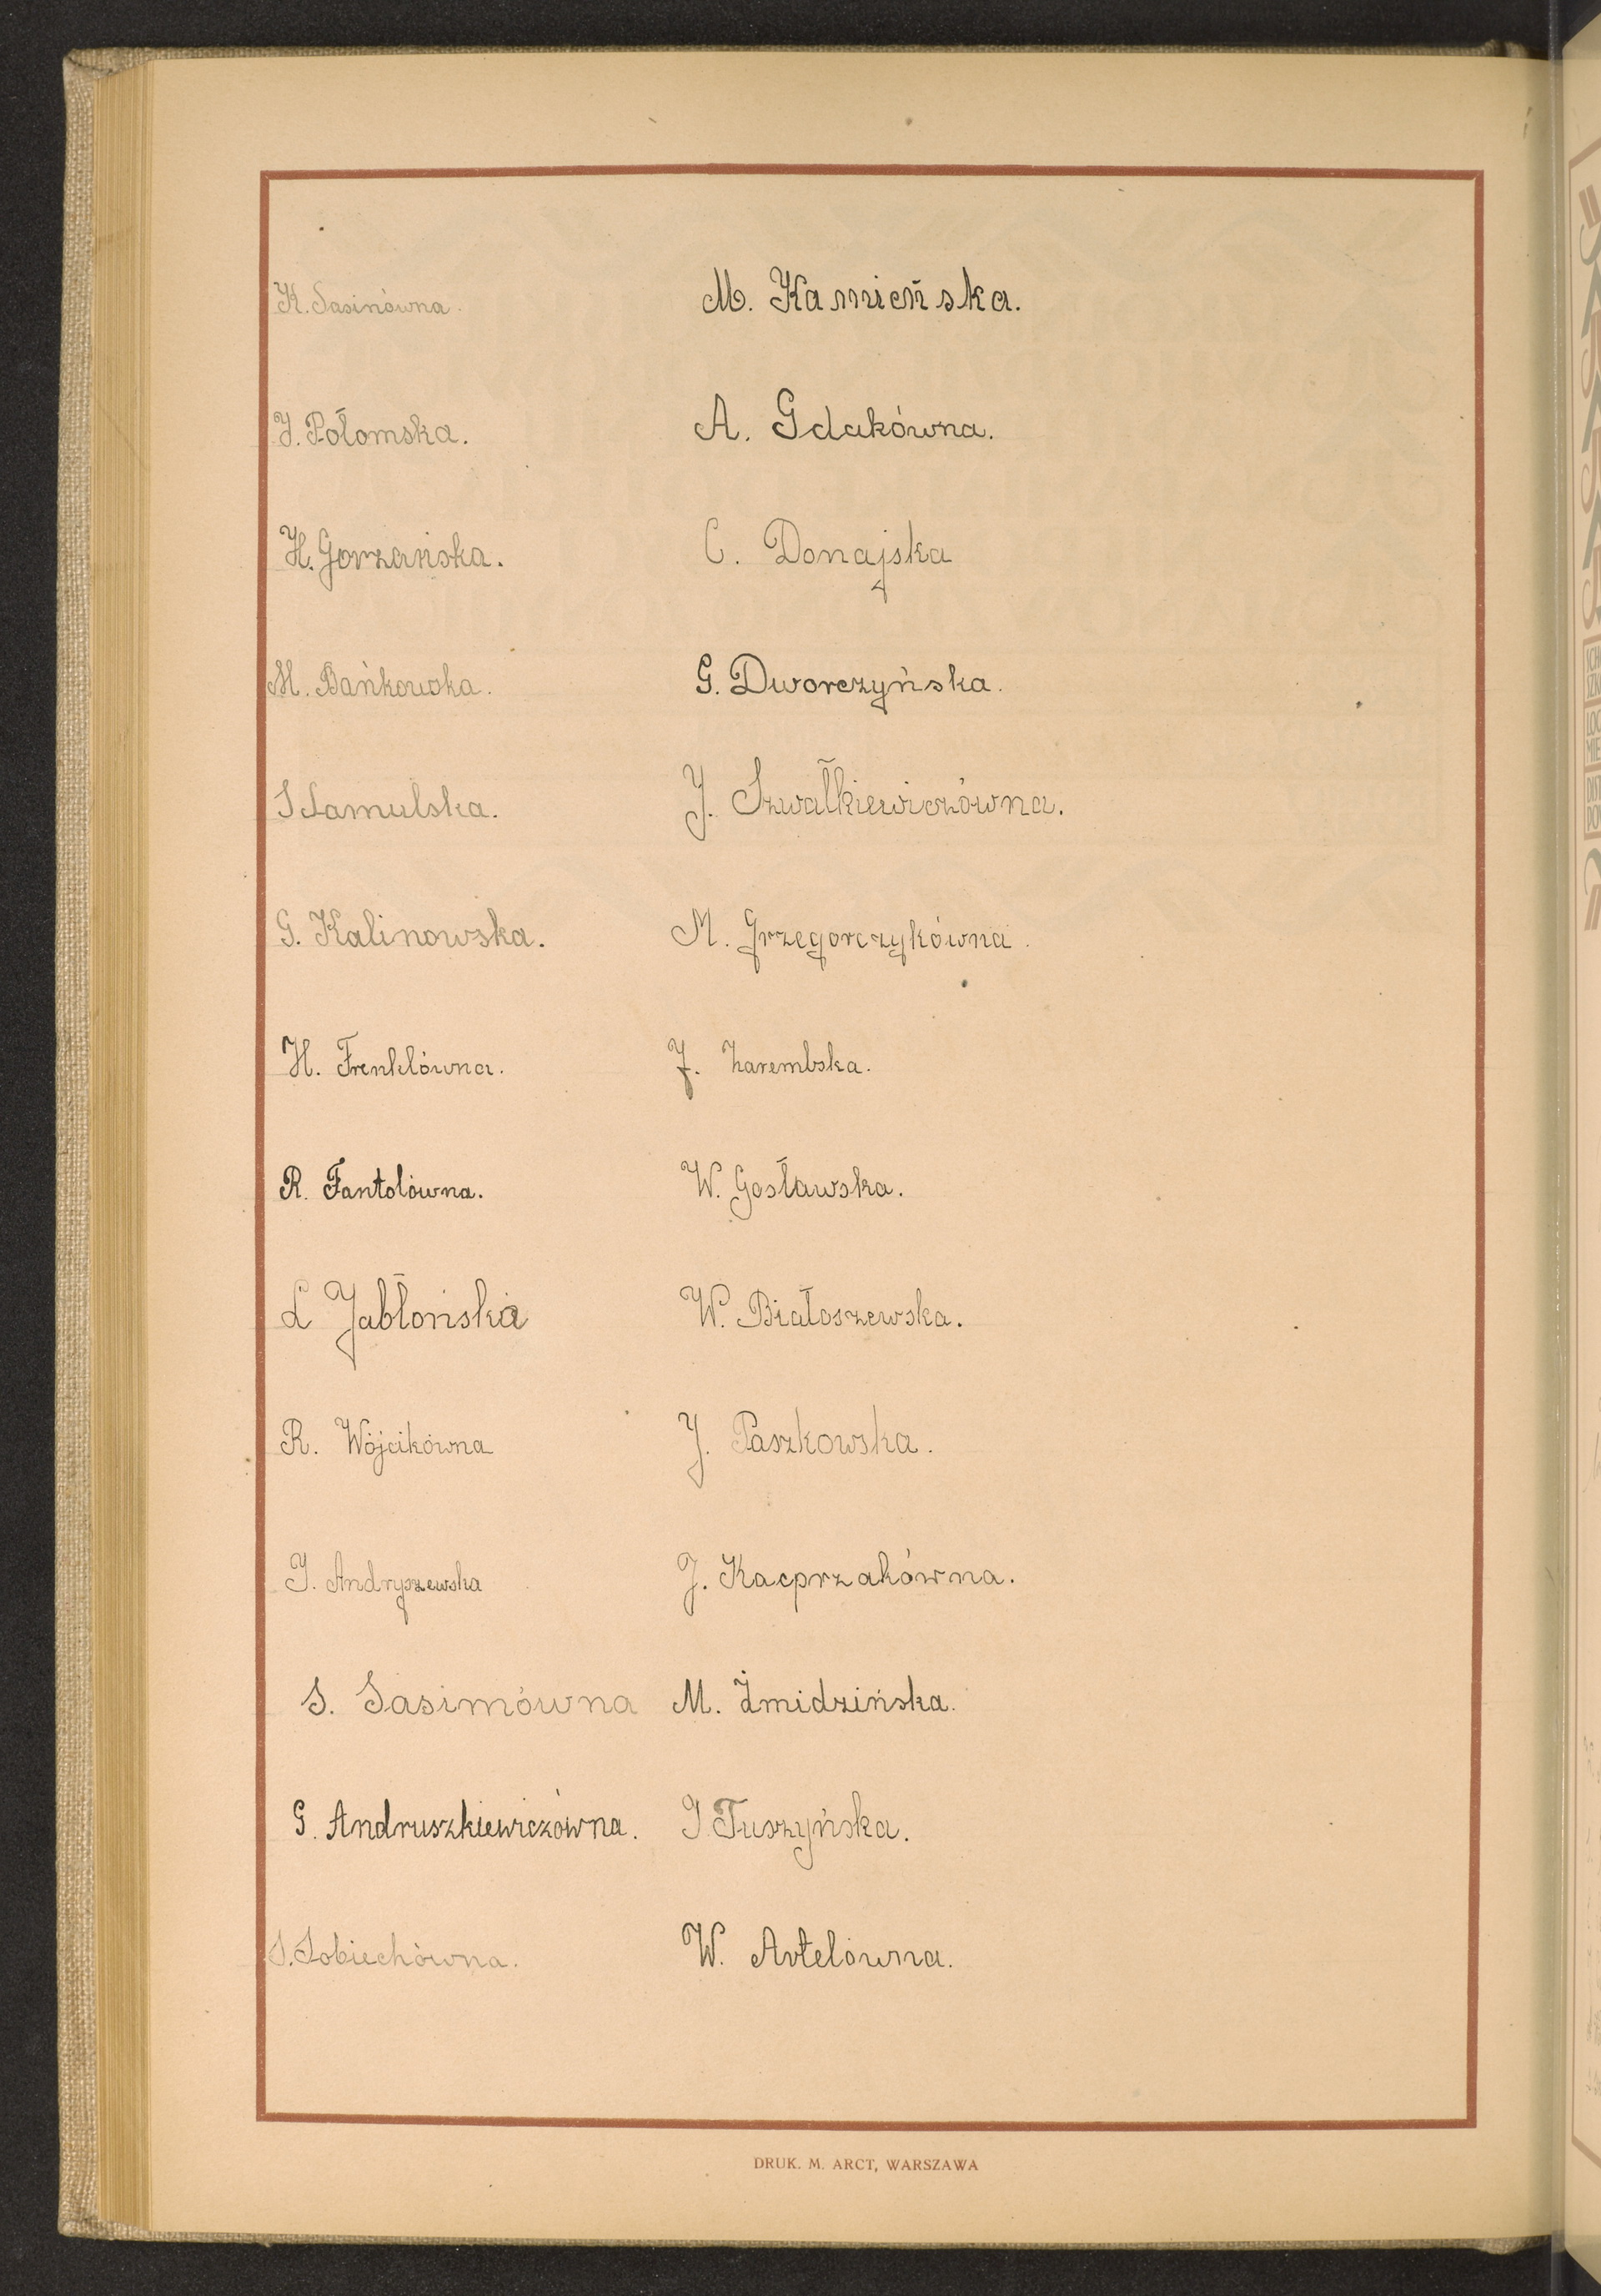 K. Sasinówna.
J. Połomska.
H. Gorzańska.
M. Bańkowska.
S Samulska.
G. Kalinowska.
H. Frenklówna.
R. Fantolówna.
L Jabłońska
R. Wójcikówna
J. Andryszewska
S. Sasimówna
G. Andruszkiewiczówna.
S. Sobiechówna.
M. Kamieńska.
A. Gdakówna.
C. Donajska
G. Dworczyńska.
J. Szwałkiewiczówna.
M. Grzegorczykówna.
J. Zarembska.
W. Gosławska.
W. Białoszewska.
J. Paszkowska.
J. Kacprzakówna.
M. Żmidzińska.
J. Tuszyńska.
W. Artelówna.
DRUK. M. ARCT, WARSZAWA